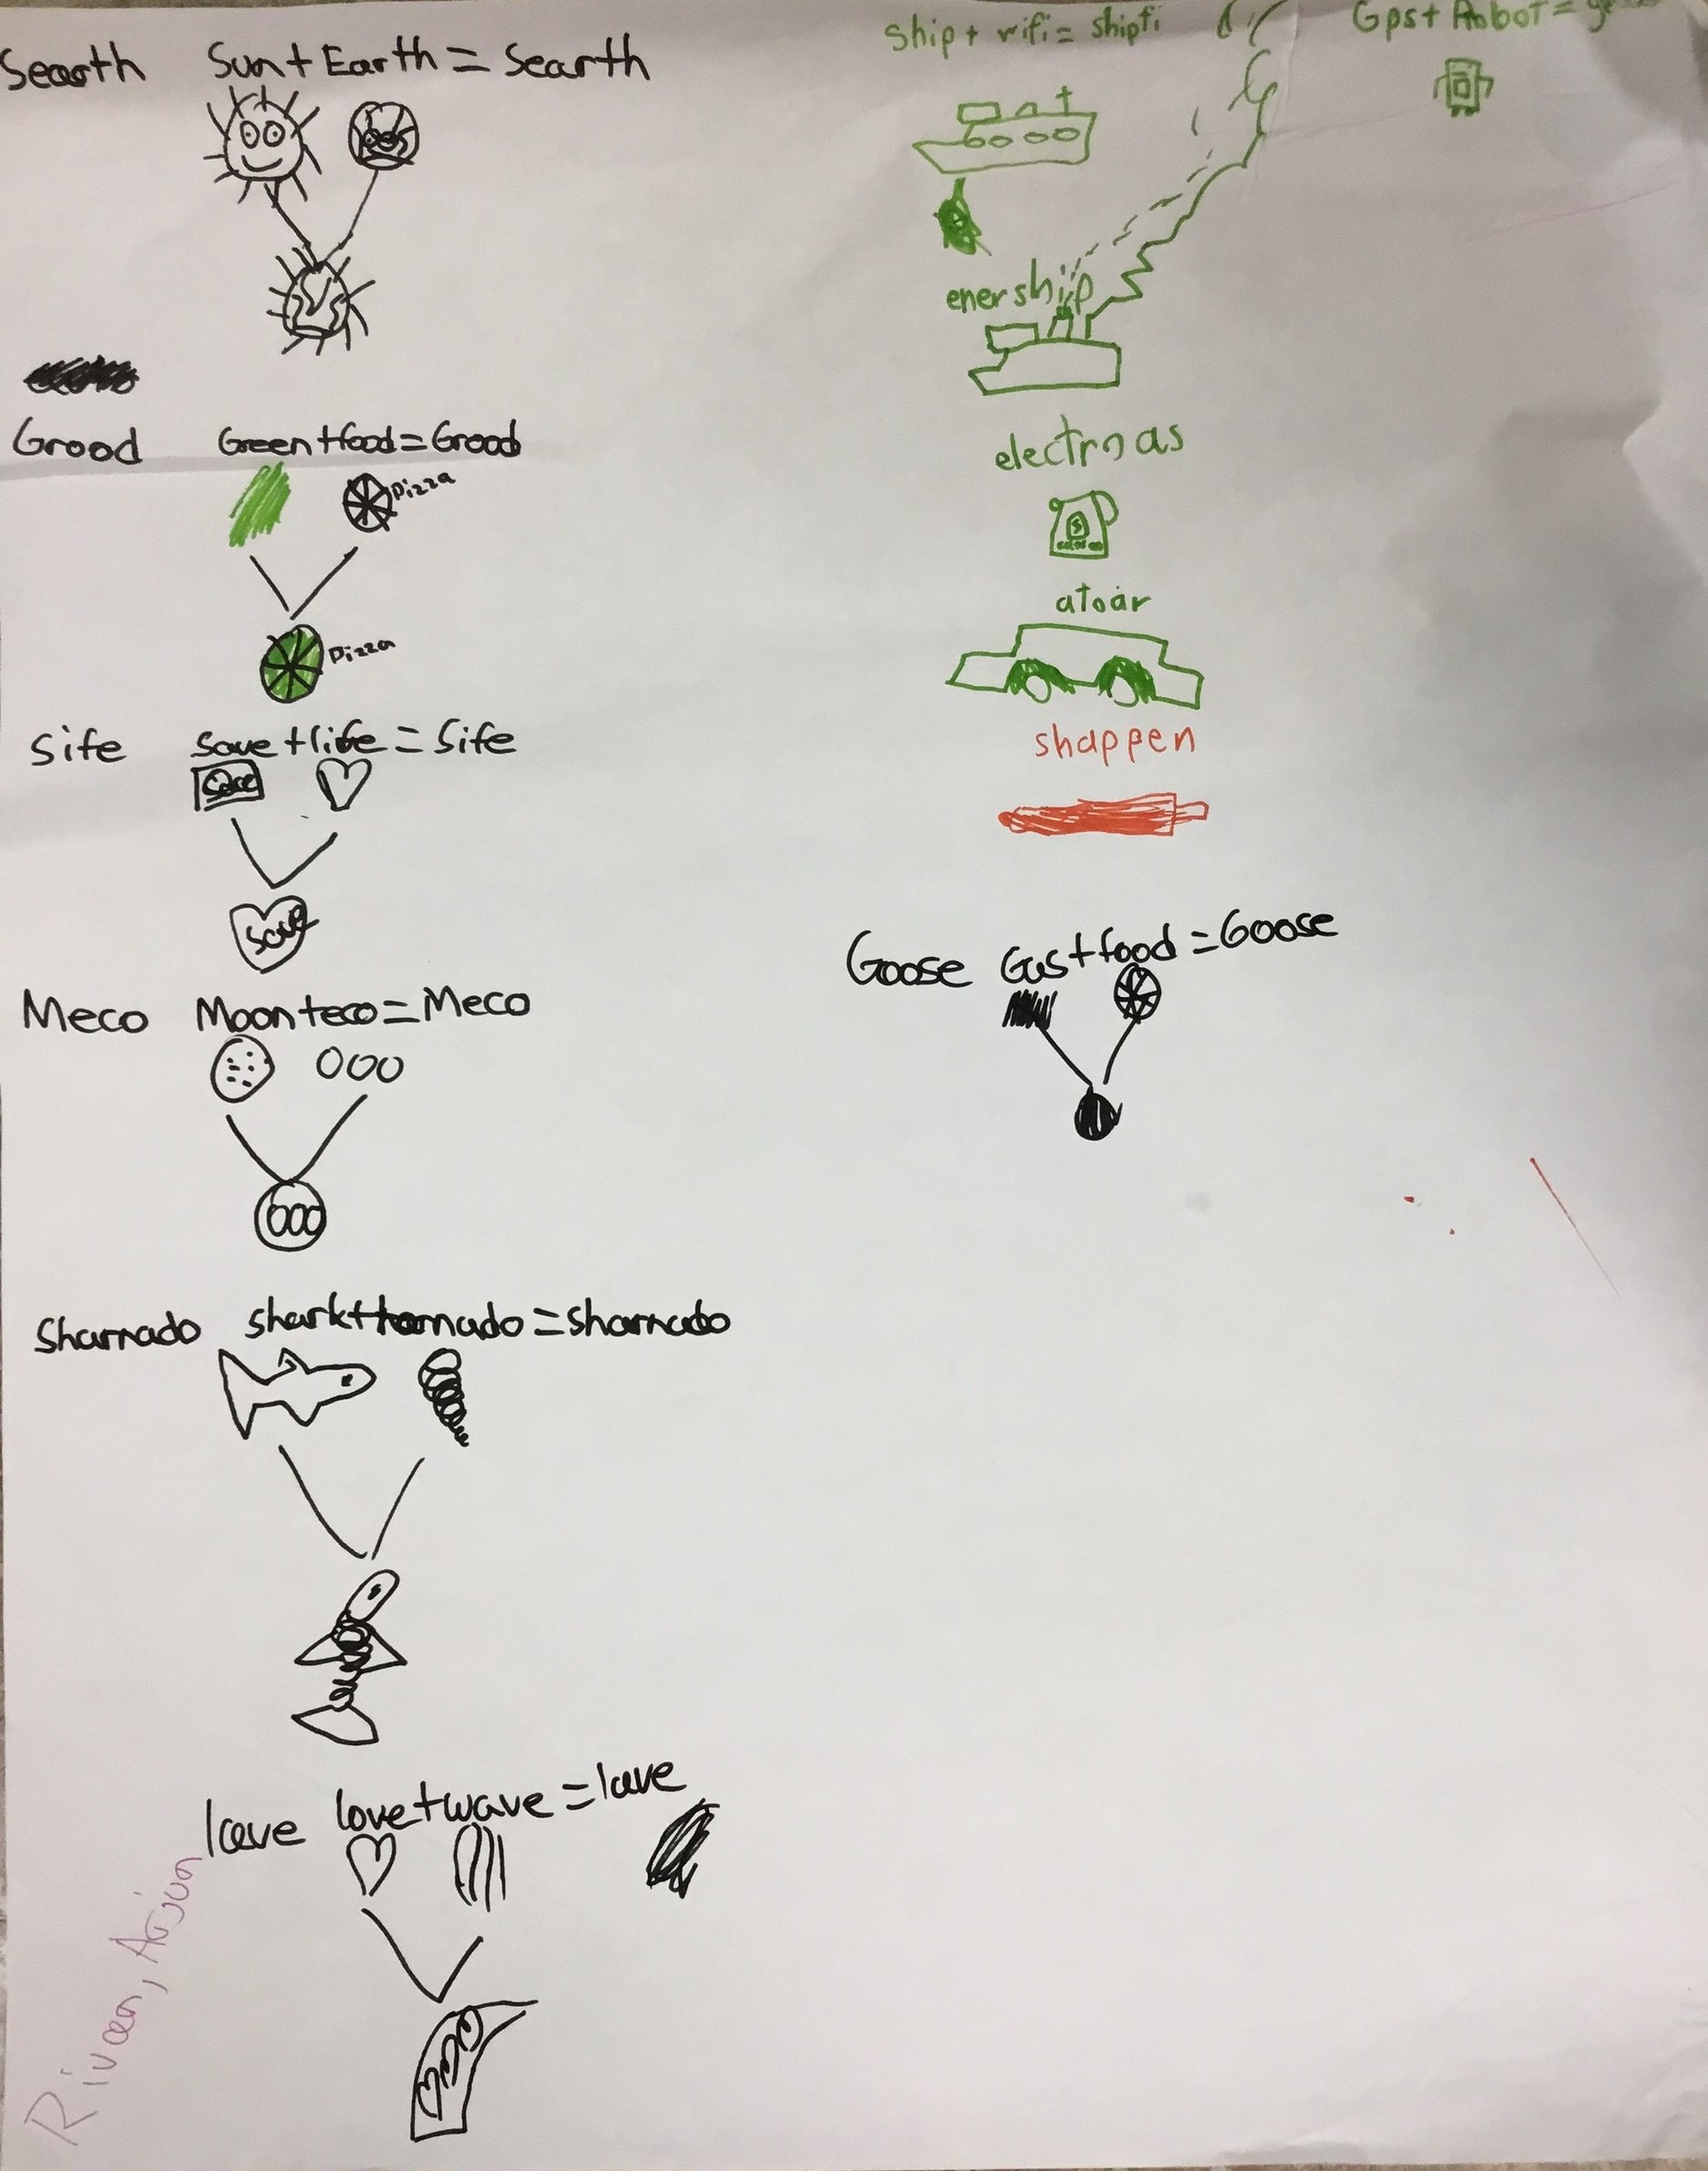 Searth Sun + Earth = Searth
Grood Green + food = Grood
Pizza
Pizza
Sife Save + life = Sife
Save
Save
Meco Moon + eco = Meco
Sharnado shark + tornado = sharnado
lave love + wave = lave
Arjun
Ship + wifi = shipfi
Gps + Robot =
enership
electrgas
atoar
shappen
Goose Gas + food = Goose